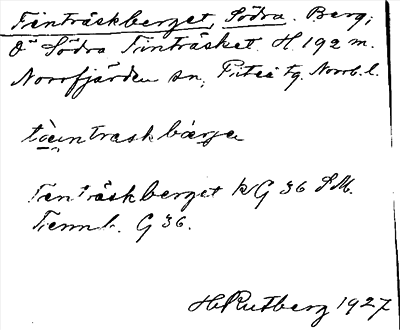 Tinträskberget, Södra. Berg;
Ö Södra Tinträsket. H. 192 m.
Norrfjärden sn, Piteå tg. Norrb. l.
Tinträskberget kG 36 SM.
G 36.
H Rutberg 1927